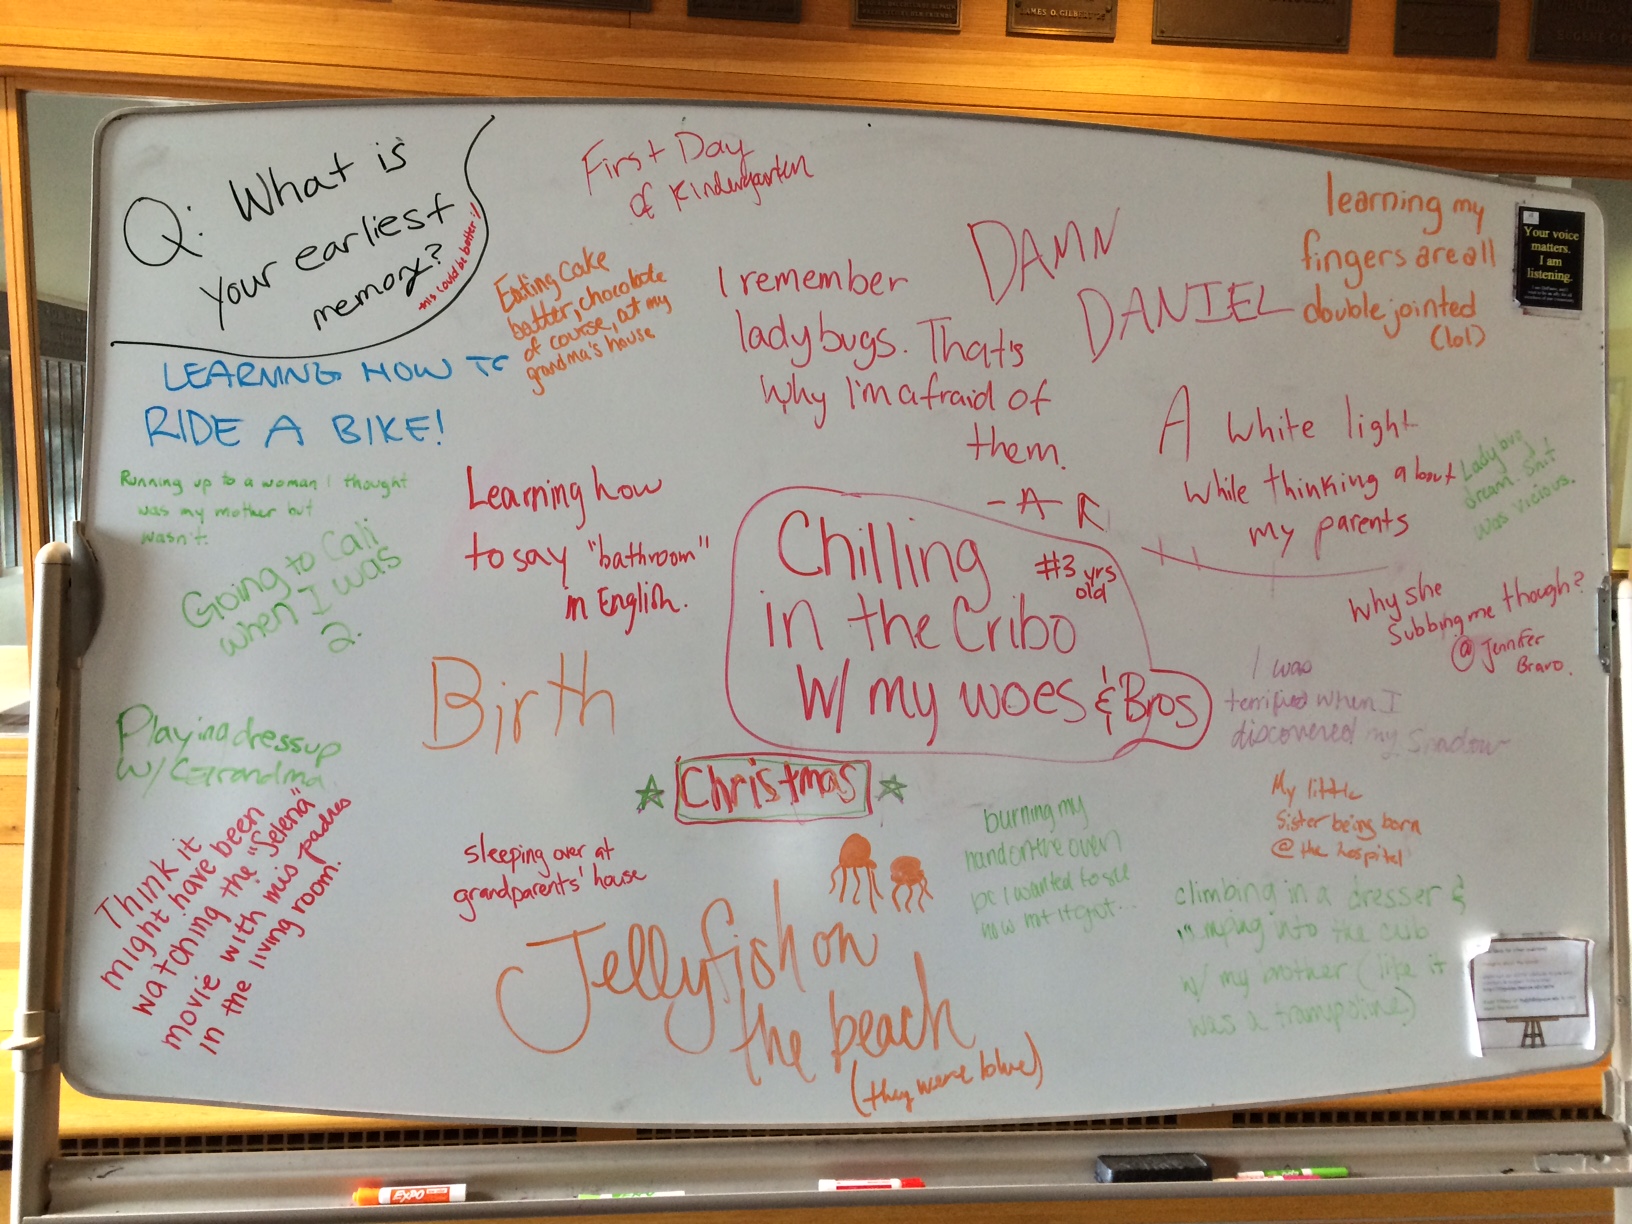 Q: What is
your earliest
memory?
this could be better :)
First Day
of Kindergarten
Eating Cake
batter, chocolate
of course, at my
grandma's house
LEARNING HOW TO
RIDE A BIKE!
I remember
ladybugs. That's
why I'm afraid of
them.
- A R
DAMN
DANIEL
learning my
fingers are all
double jointed
(lol)
Your voice
matters.
I am
listening.
A white light
while thinking about
my parents
Lady bug
dream. Shit
was vicious.
Running up to a woman I thought
was my mother but
wasn't.
Going to Cali
when I was
2.
Learning how
to say "bathroom"
in English.
Chilling
in the Cribo
w/ my woes & Bros
#3 yrs
old
Why she
Subbing me though?
@ Jennifer
Bravo.
I was
terrified when I
discovered my shadow
Birth
Playing dress up
w/ Grandma
Christmas
My little
Sister being born
@ the hospital
Think it
might have been
watching the "Selena"
movie with mis padres
in the living room.
sleeping over at
grandparents' house
burning my
hand on the oven
bc I wanted to see
how hot it got...
Jellyfish on
the beach
(they were blue)
climbing in a dresser &
jumping into the crib
w/ my brother (like it
was a trampoline)
JAMES O. GILBERT
EXPO